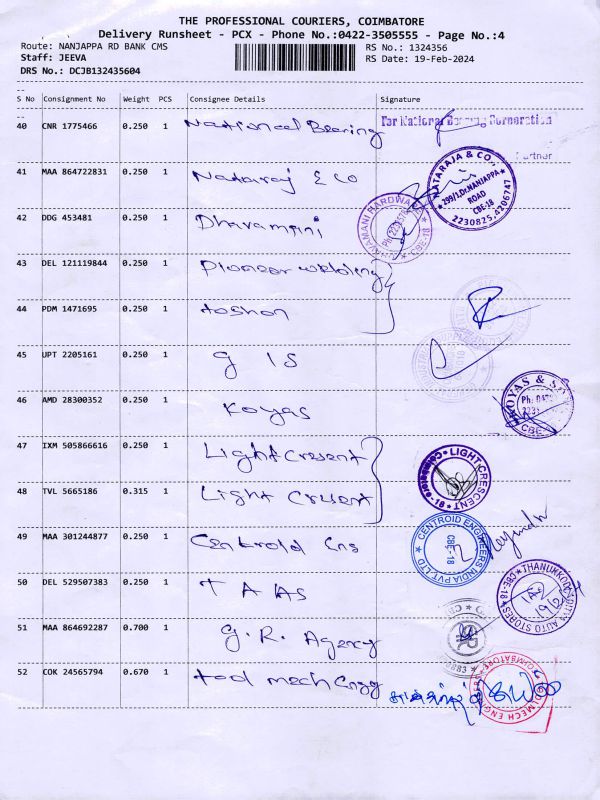 THE PROFESSIONAL COURIERS, COIMBATORE
Delivery Runsheet - PCX - Phone No.:0422-3505555 - Page No.:4
Route: NANJAPPA RD BANK CMS RS No.: 1324356
Staff: JEEVA RS Date: 19-Feb-2024
DRS No.: DCJB132435604
S No Consignment No Weight PCS Consignee Details Signature
40 CNR 1775466 0.250 1 National Bearing For National Bearing Corporation
Partner
41 MAA 864722831 0.250 1 Nataraj & Co NATARAJA & CO., 299/1,Dr.NANJAPPA ROAD CBE-18 2230825,4206747
42 DDG 453481 0.250 1 Dhavamani HARDWA CBE-18
43 DEL 121119844 0.250 1 Pioneer welding
44 PDM 1471695 0.250 1
45 UPT 2205161 0.250 1 G IS
46 AMD 28300352 0.250 1 Koyas KOYAS & CBE
47 IXM 505866616 0.250 1 Light Cresent
48 TVL 5665186 0.315 1 Light Cresent LIGHT CRESCENT
49 MAA 301244877 0.250 1 Centroid Eng CENTROID ENGINEERS INDIA PVT LTD CBE-18
50 DEL 529507383 0.250 1 T A AS AUTO STORES CBE-18
51 MAA 864692287 0.700 1 G.R. Agency
52 COK 24565794 0.670 1 tool mech Engg MECH COIMBATORE